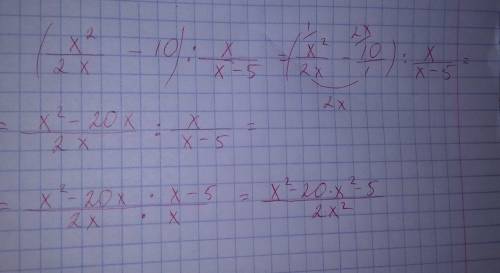 (x²/2x − 10) : x/(x−5) = (x²/2x − 10/1) : x/(x−5) =
1 2x
2x
= (x²−20x)/2x : x/(x−5) =
= (x²−20x)/2x : (x−5)/x = (x²−20·x²−5)/2x²